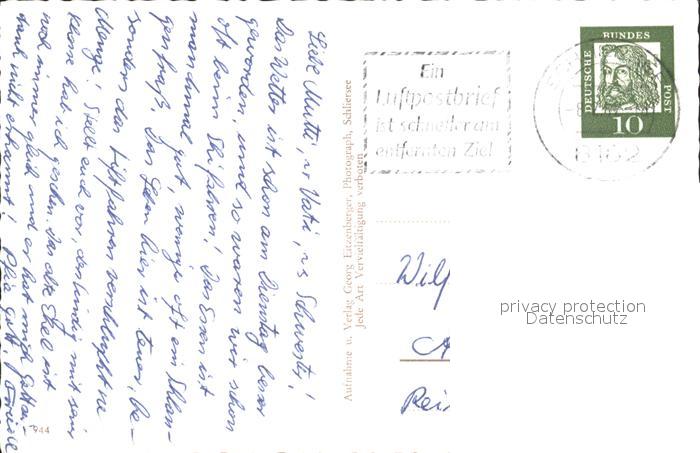 Liebe Mutti, Vati, Schwester!
Das Wetter ist schon am Dienstag besser
geworden, und so waren wir schon
oft beim Skifahren! Das Essen ist
manchmal gut, weniger oft ein Schlan-
genfraß. Das Leben hier ist teuer, be-
sonders das Liftfahren verschlingt ne
Menge! Stellt euch vor, den mit sein
hab ich gesehen. Das alte Ekel ist
noch immer gleich und er hat mich Gott
Aufnahme u. Verlag Georg Eitzenberger, Photograph, Schliersee
Jede Art Vervielfältigung verboten
944
Ein
Luftpostbrief
ist schneller am
entfernten Ziel
8162
DEUTSCHE BUNDES POST
10
Wilf
Rei
privacy protection
Datenschutz